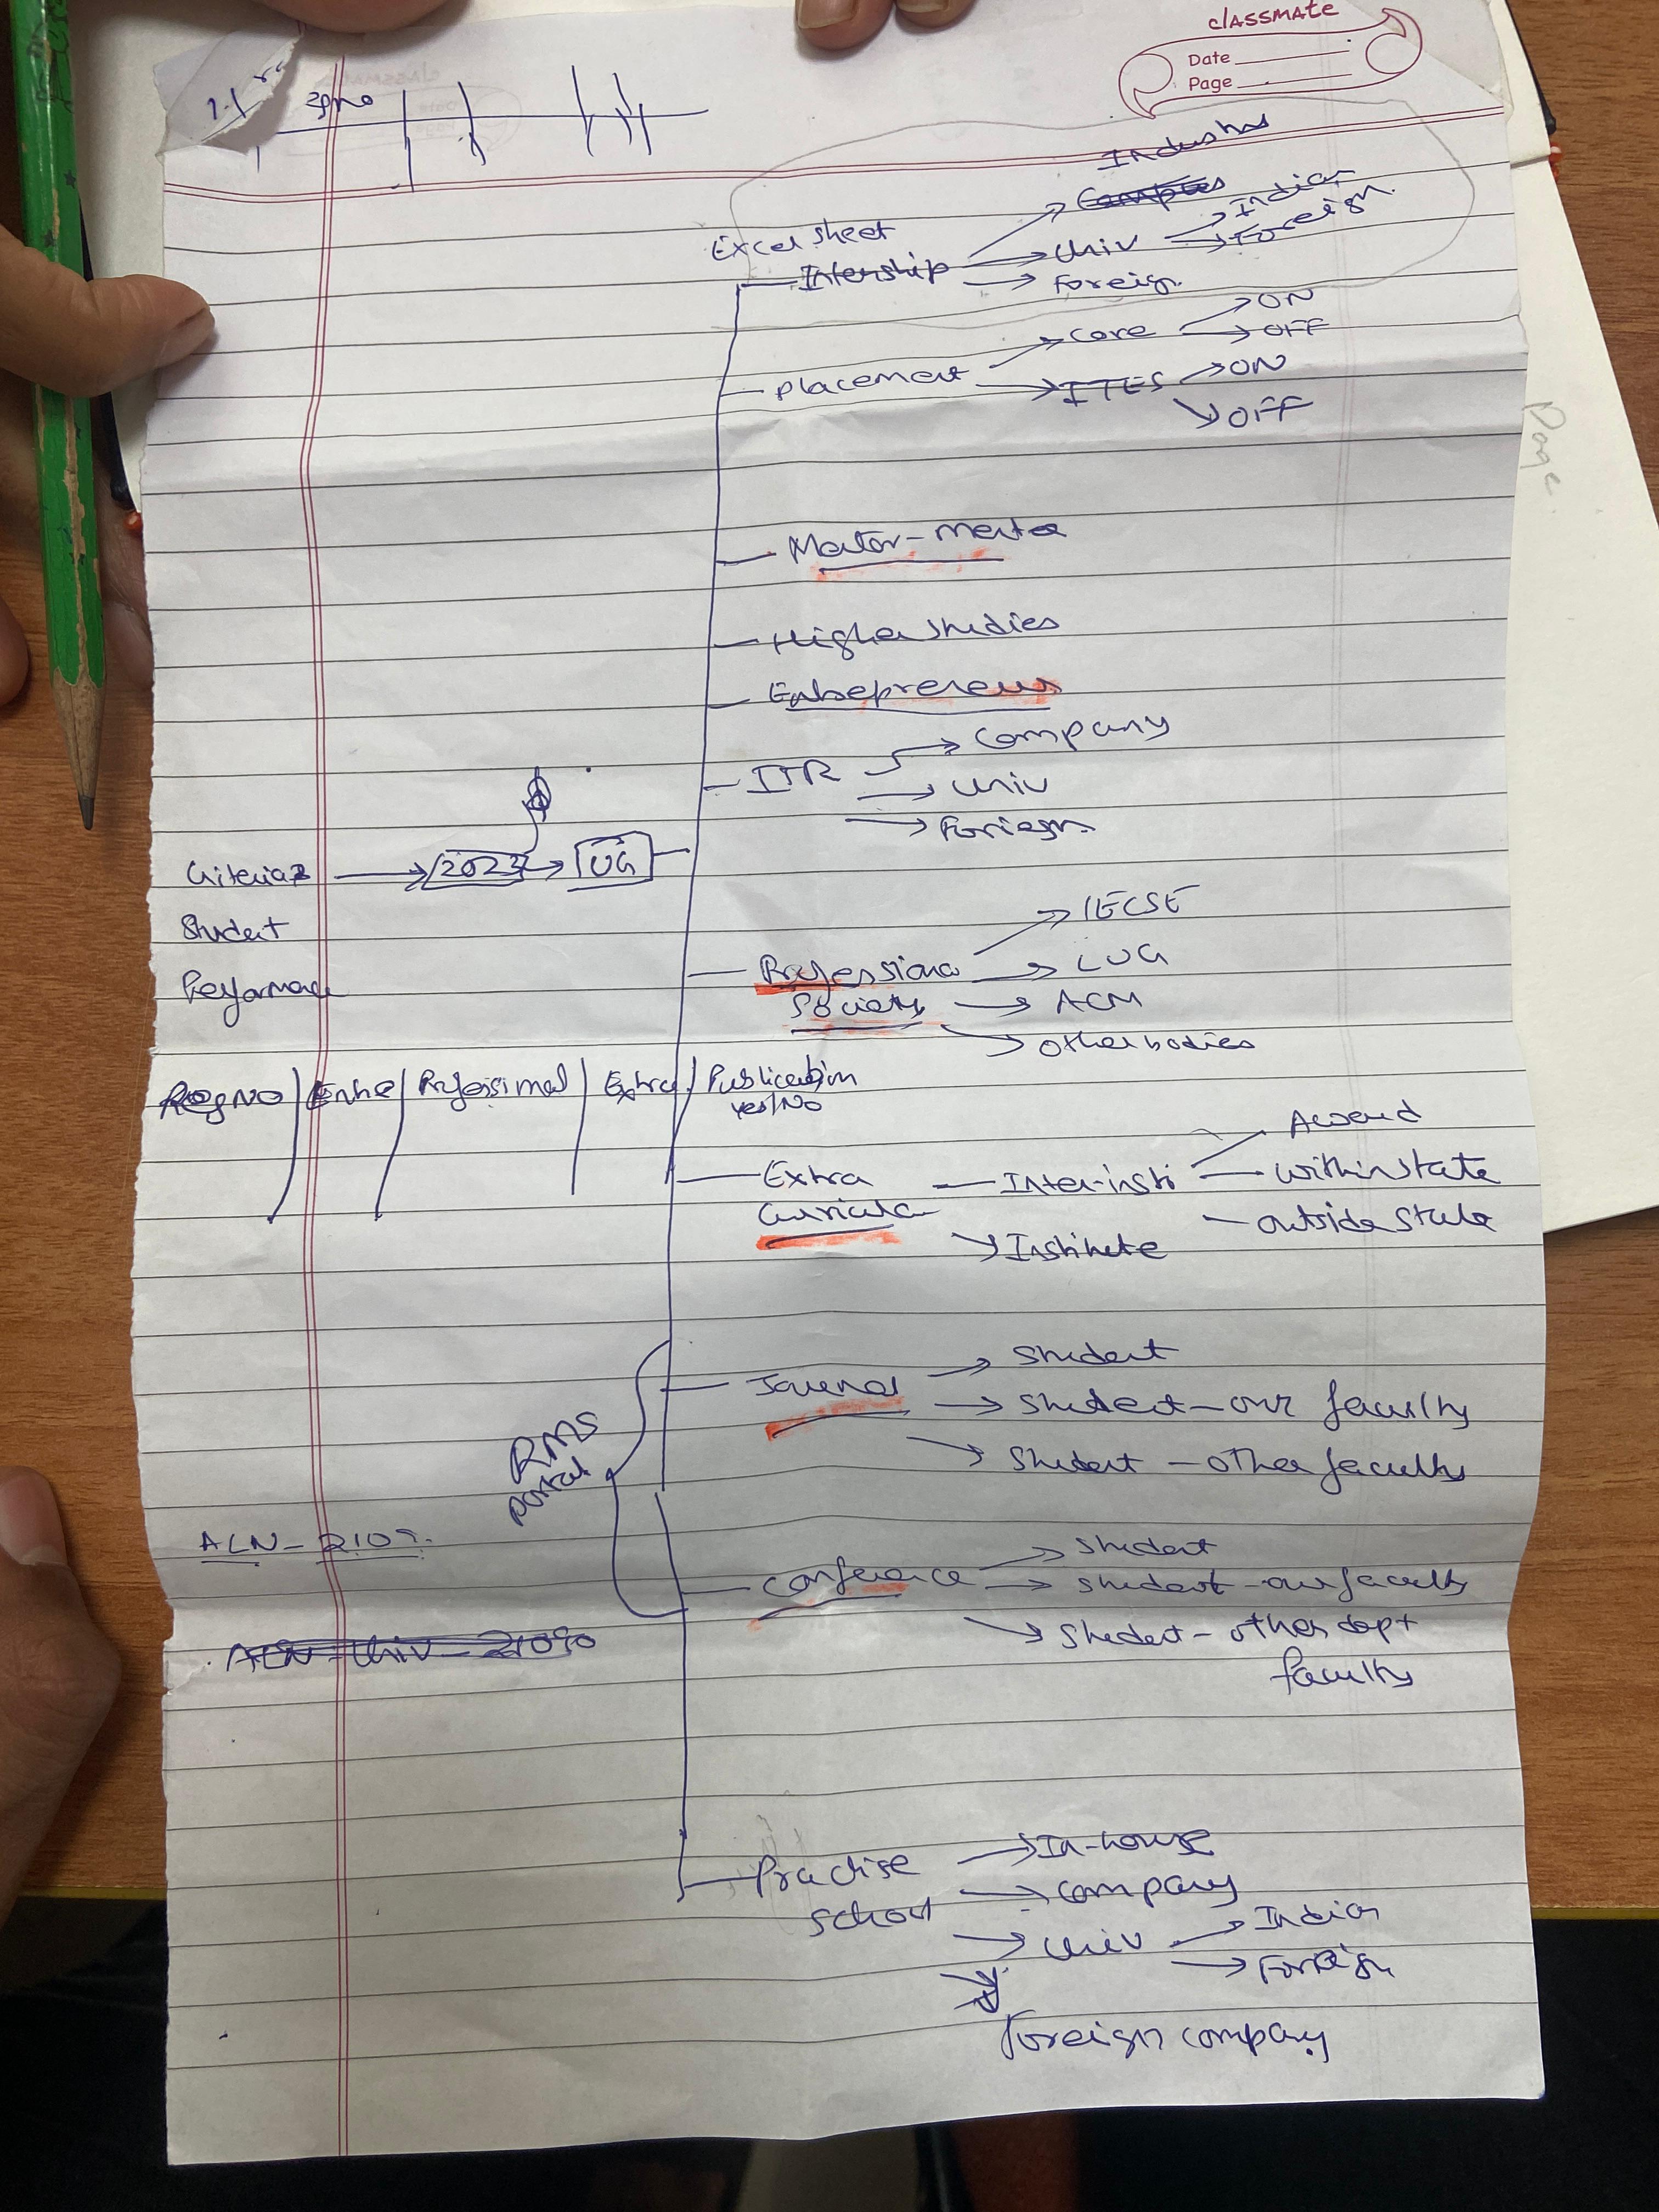 classmate
Date
Page
Industries
Campus
Excel sheet
Intership
Univ
Indian
Foreign
Foreign
Placement
Core
ON
OFF
ITES
ON
OFF
Page
Mentor-mentee
Higher studies
Entrepreneur
ITR
Company
Univ
Foriegn
Criteria
2023
UG
Student
Performance
Professional
Society
IECSE
LUG
ACM
Other bodies
RegNo
Entre
Professional
Extra
Publication
Yes/No
Extra
Curricular
Inter-insti
Award
within state
outside state
Institute
RMS
portal
Journal
Student
Student-our faculty
Student-other faculty
ALN-210
Conference
Student
Student-our faculty
Student-other dept
faculty
Practise
School
In-house
Company
Univ
Indian
Foreign
foreign company